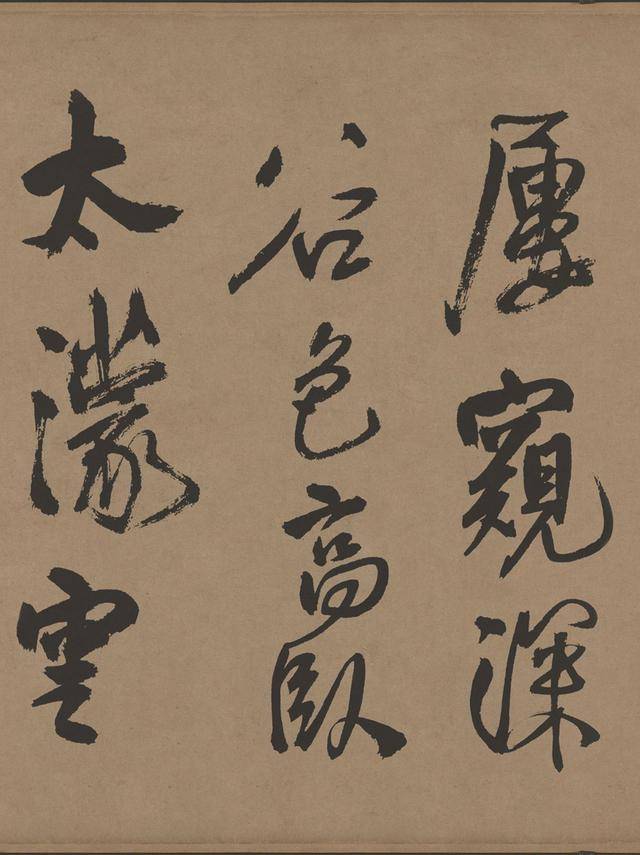 屢窺深
谷色高臥
太濛雲